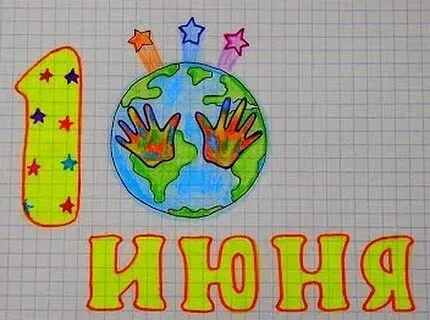 1
ИЮНЯ